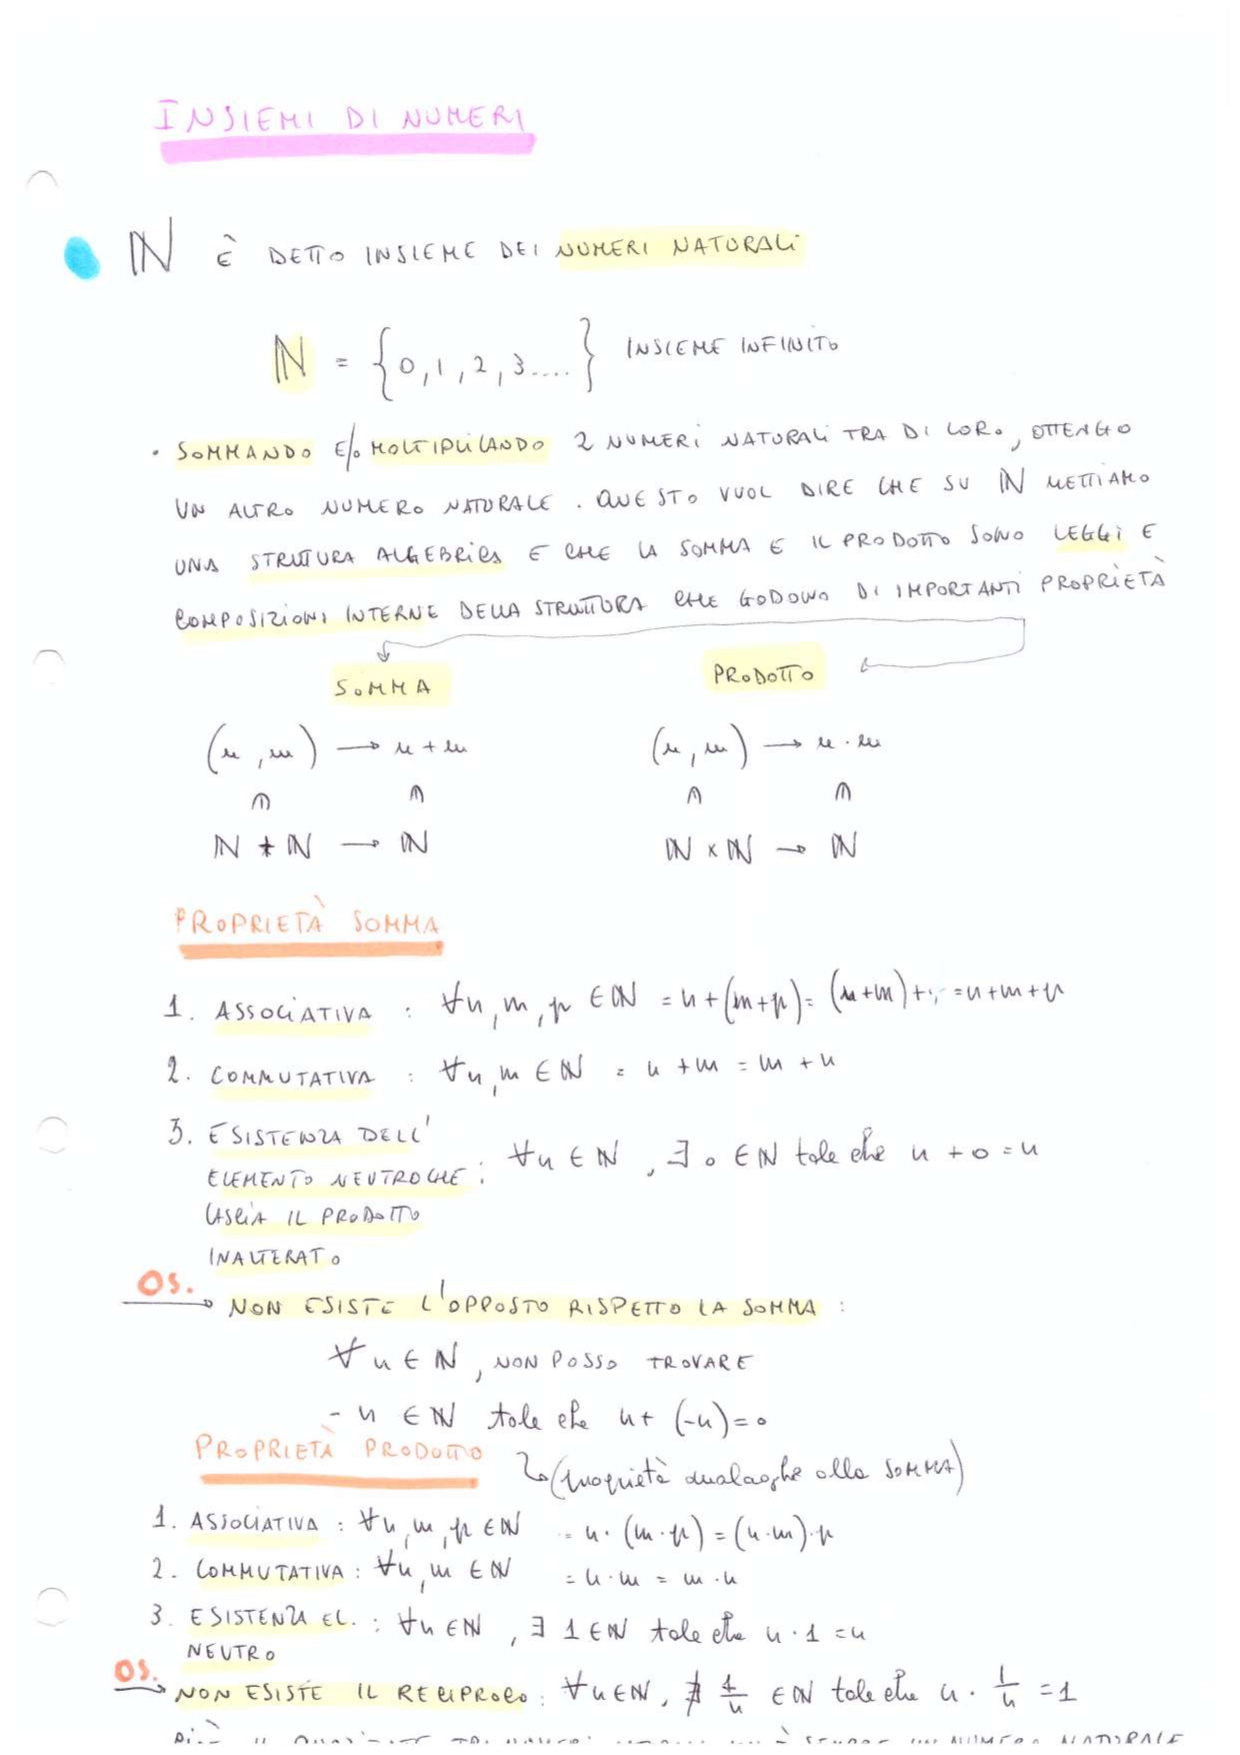 INSIEMI DI NUMERI
ℕ È DETTO INSIEME DEI NUMERI NATURALI
ℕ = {0, 1, 2, 3....} INSIEME INFINITO
• SOMMANDO E/O MOLTIPLICANDO 2 NUMERI NATURALI TRA DI LORO, OTTENGO
UN ALTRO NUMERO NATURALE. QUESTO VUOL DIRE CHE SU ℕ METTIAMO
UNA STRUTTURA ALGEBRICA E CHE LA SOMMA E IL PRODOTTO SONO LEGGI E
COMPOSIZIONI INTERNE DELLA STRUTTURA CHE GODONO DI IMPORTANTI PROPRIETÀ
SOMMA PRODOTTO
(n, m) → n + m (n, m) → n · m
∈ ∈ ∈ ∈
ℕ + ℕ → ℕ ℕ × ℕ → ℕ
PROPRIETÀ SOMMA
1. ASSOCIATIVA : ∀n, m, p ∈ ℕ = n + (m+p) = (n+m) + = n+m+p
2. COMMUTATIVA : ∀n, m ∈ ℕ = n + m = m + n
3. ESISTENZA DELL'
ELEMENTO NEUTRO CHE : ∀n ∈ ℕ, ∃ 0 ∈ ℕ tale che n + 0 = n
LASCIA IL PRODOTTO
INALTERATO
OS.
→ NON ESISTE L'OPPOSTO RISPETTO LA SOMMA :
∀ n ∈ ℕ, NON POSSO TROVARE
- n ∈ ℕ tale che n + (-n) = 0
PROPRIETÀ PRODOTTO ↳ (proprietà analoghe alla SOMMA)
1. ASSOCIATIVA : ∀n, m, p ∈ ℕ = n · (m · p) = (n · m) · p
2. COMMUTATIVA : ∀n, m ∈ ℕ = n · m = m · n
3. ESISTENZA EL. : ∀n ∈ ℕ, ∃ 1 ∈ ℕ tale che n · 1 = n
NEUTRO
OS.
→ NON ESISTE IL RECIPROCO : ∀n ∈ ℕ, ∄ 1/n ∈ ℕ tale che n · 1/n = 1
NUMERO NATURALE